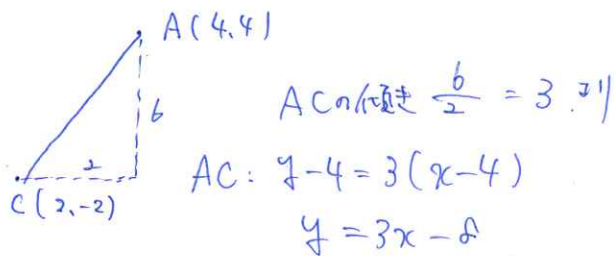 A(4,4)
6
2
C(2,-2)
ACの傾き 6/2 = 3 より
AC: y-4=3(x-4)
y=3x-8